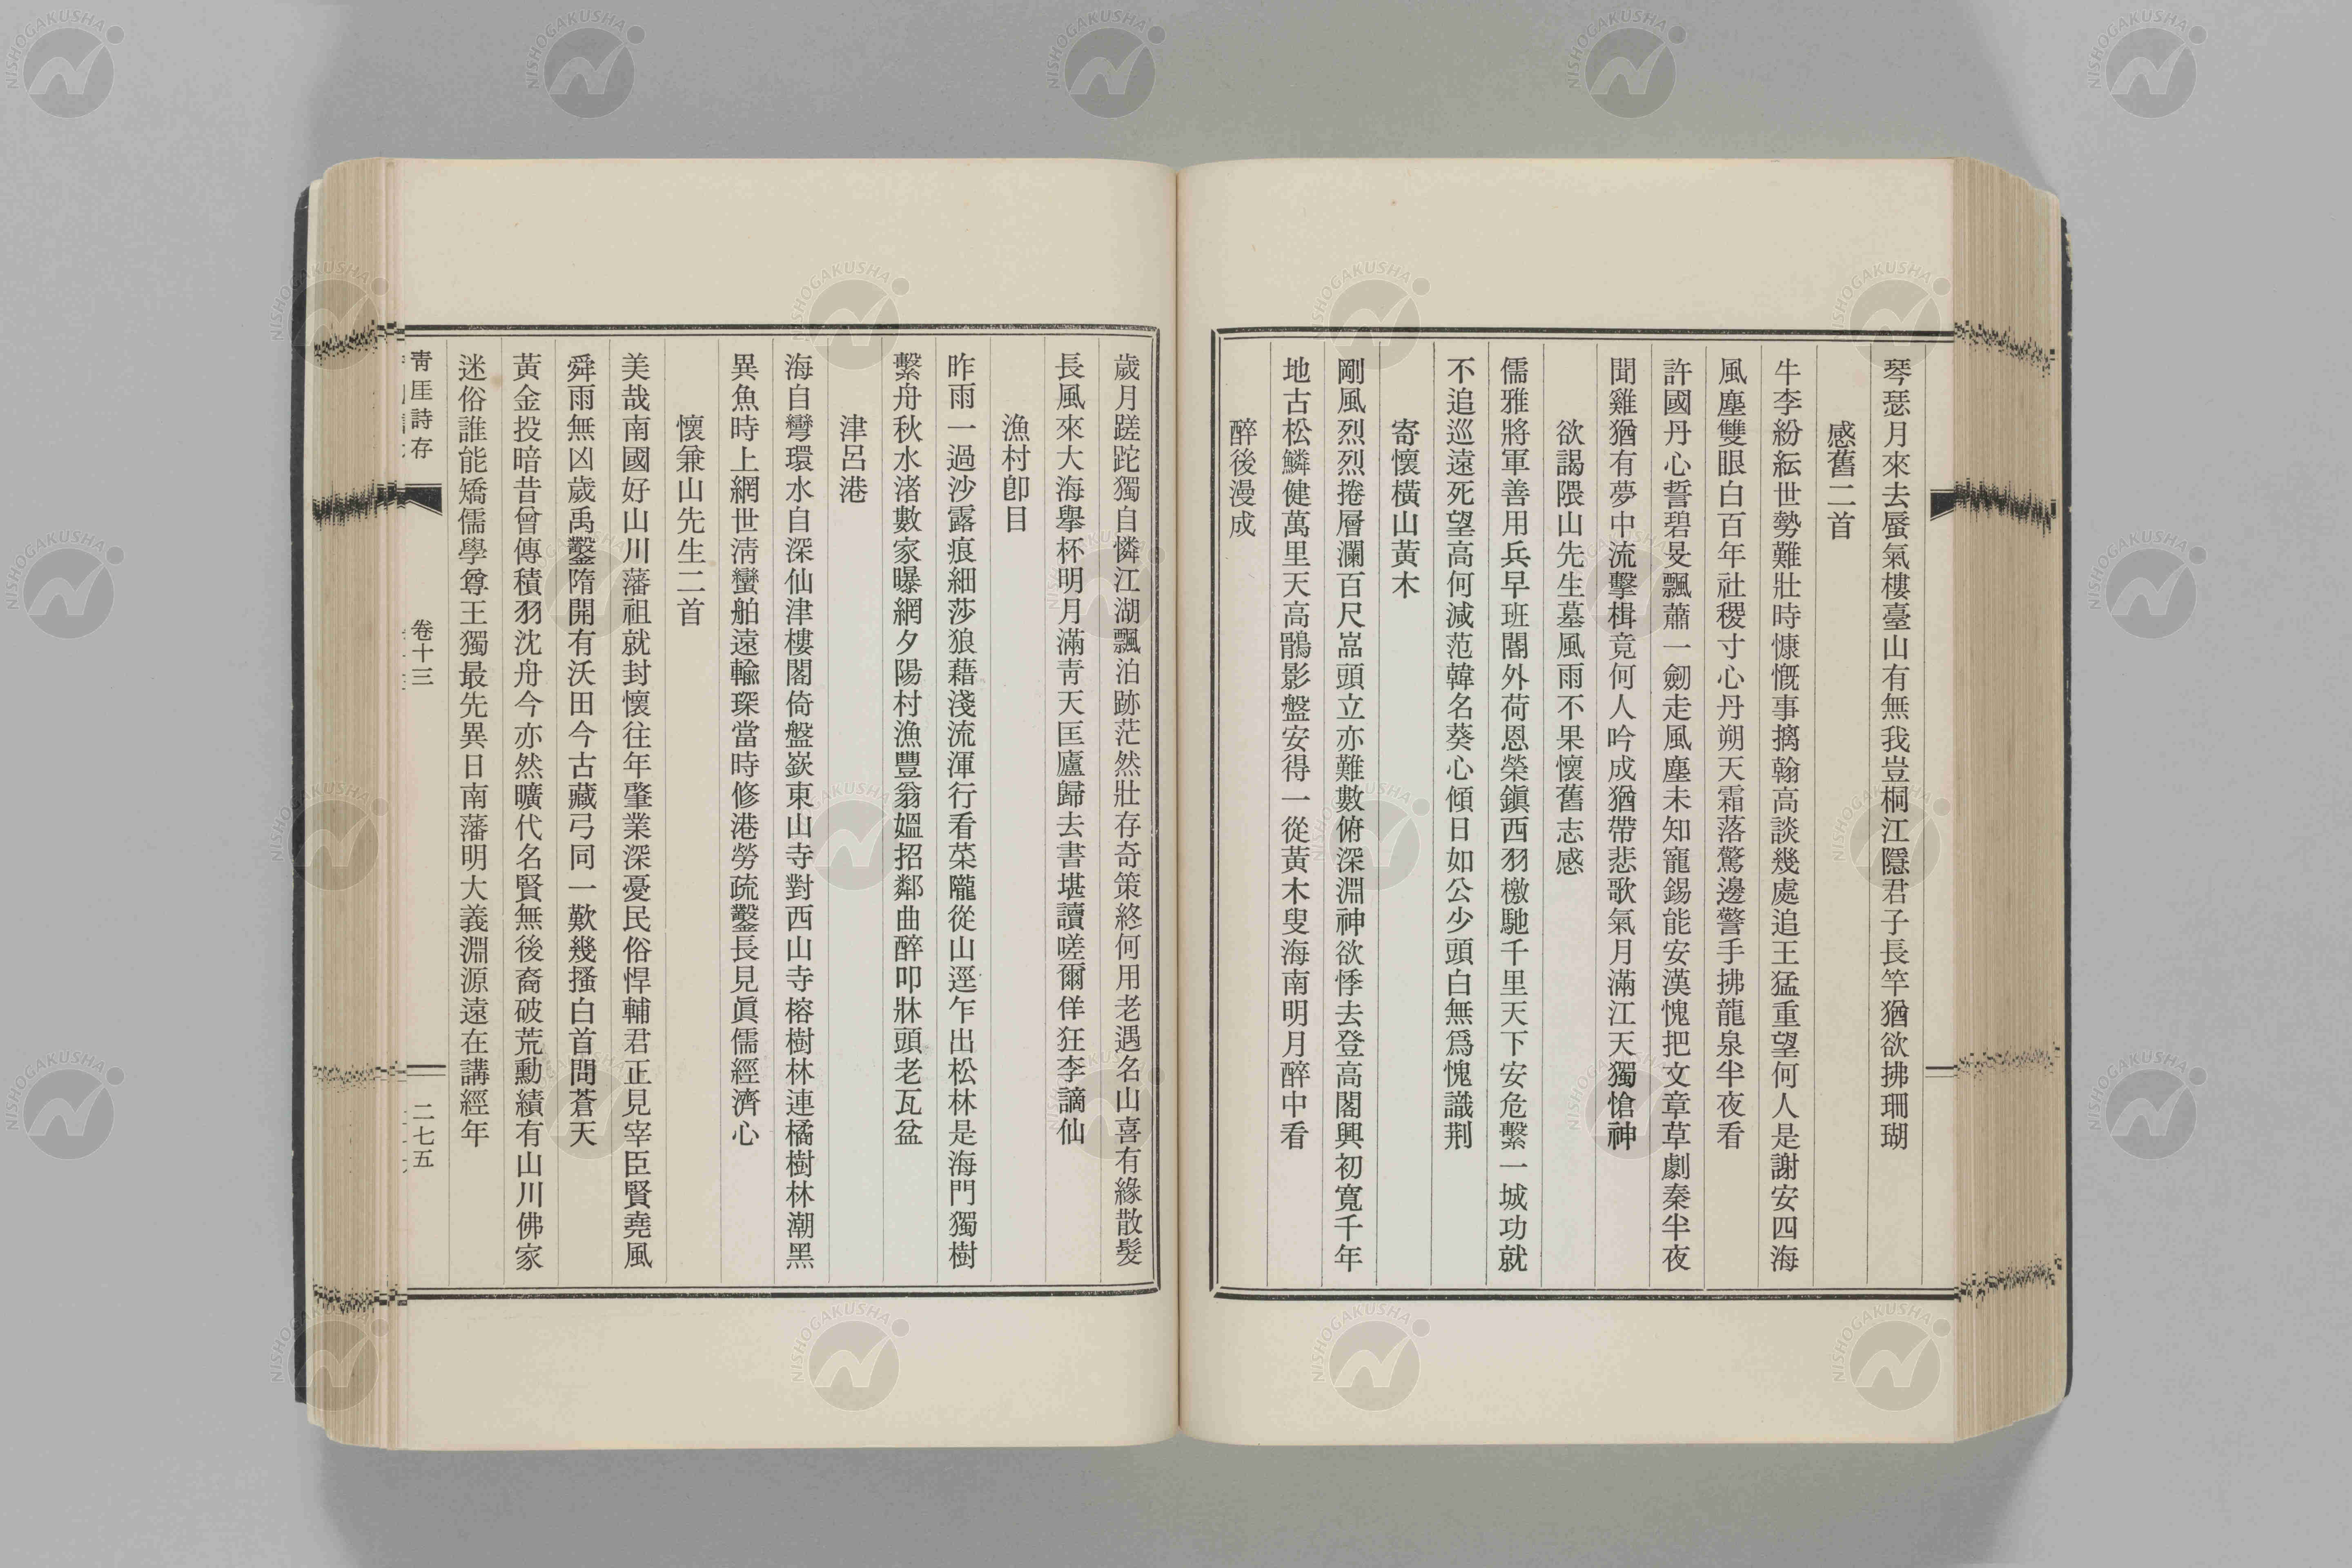 琴瑟月來去蜃氣樓臺山有無我豈桐江隱君子長竿猶欲拂珊瑚
感舊二首
牛李紛紜世勢難壯時慷慨事摛翰高談幾處追王猛重望何人是謝安四海
風塵雙眼白百年社稷寸心丹朔天霜落驚邊警手拂龍泉半夜看
許國丹心誓碧旻飄蕭一劒走風塵未知寵錫能安漢愧把文章草劇秦半夜
聞雞猶有夢中流擊楫竟何人吟成猶帶悲歌氣月滿江天獨愴神
欲謁隈山先生墓風雨不果懷舊志感
儒雅將軍善用兵早班閫外荷恩榮鎭西羽檄馳千里天下安危繫一城功就
不追巡遠死望高何減范韓名葵心傾日如公少頭白無爲愧識荆
寄懷橫山黃木
剛風烈烈捲層瀾百尺嵓頭立亦難數俯深淵神欲悸去登高閣興初寬千年
地古松鱗健萬里天高鶻影盤安得一從黃木叟海南明月醉中看
醉後漫成
歲月蹉跎獨自憐江湖飄泊跡茫然壯存奇策終何用老遇名山喜有緣散髮
長風來大海擧杯明月滿靑天匡廬歸去書堪讀嗟爾佯狂李謫仙
漁村卽目
昨雨一過沙露痕細莎狼藉淺流渾行看菜隴從山逕乍出松林是海門獨樹
繫舟秋水渚數家曝網夕陽村漁豐翁媼招鄰曲醉叩牀頭老瓦盆
津呂港
海自彎環水自深仙津樓閣倚盤嶔東山寺對西山寺榕樹林連橘樹林潮黑
異魚時上網世淸蠻舶遠輸琛當時修港勞疏鑿長見眞儒經濟心
懷兼山先生二首
美哉南國好山川藩祖就封懷往年肇業深憂民俗悍輔君正見宰臣賢堯風
舜雨無凶歲禹鑿隋開有沃田今古藏弓同一歎幾搔白首問蒼天
黃金投暗昔曾傳積羽沈舟今亦然曠代名賢無後裔破荒勳績有山川佛家
迷俗誰能矯儒學尊王獨最先異日南藩明大義淵源遠在講經年
靑厓詩存 卷十三 二七五
NISHOGAKUSHA